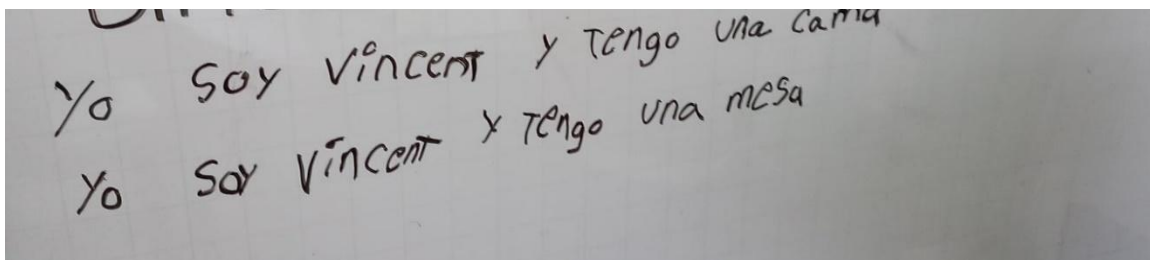 Yo soy Vincent y Tengo una cama
Yo soy Vincent y Tengo una mesa